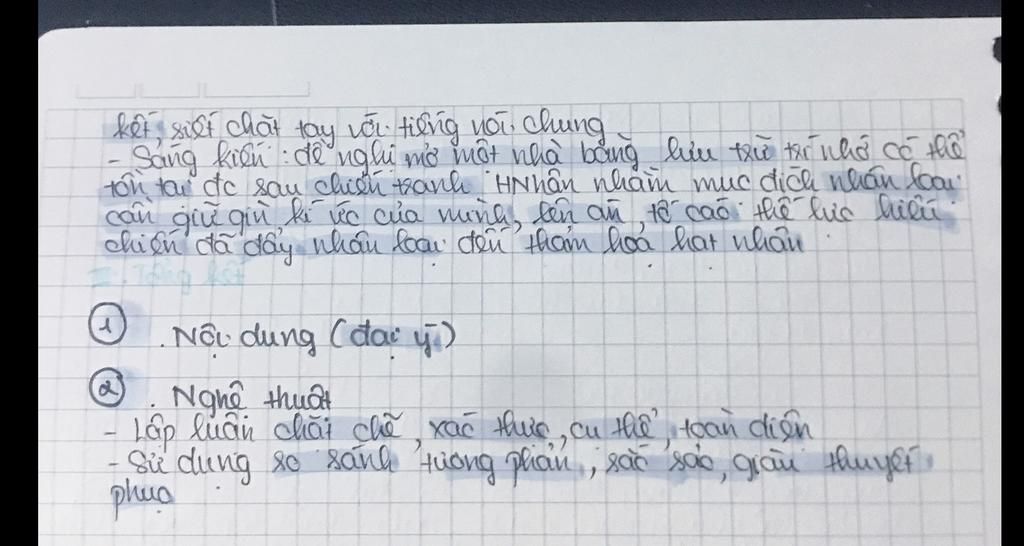 kết, siết chặt tay với tiếng nói chung
- Sáng kiến: đề nghị mở một nhà băng lưu trữ trí nhớ có thể
tồn tại đc sau chiến tranh HNhân nhằm mục đích nhân loại
cần giữ gìn kí ức của mình, lên án, tố cáo thế lực hiếu
chiến đã đẩy nhân loại đến thảm hoạ hạt nhân
III. Tổng kết
1 . Nội dung (đại ý)
2 . Nghệ thuật
- Lập luận chặt chẽ, xác thực, cụ thể, toàn diện
- Sử dụng so sánh tương phản, sắc sảo, giàu thuyết
phục